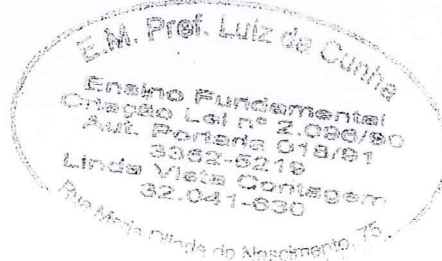 E.M. Prof. Luiz da Cunha
Ensino Fundamental
Criação Lei nº 2.086/90
Aut. Portaria 018/91
3362-5219
Linda Vista Contagem
32.041-630
Rua Maria do Nascimento, 75